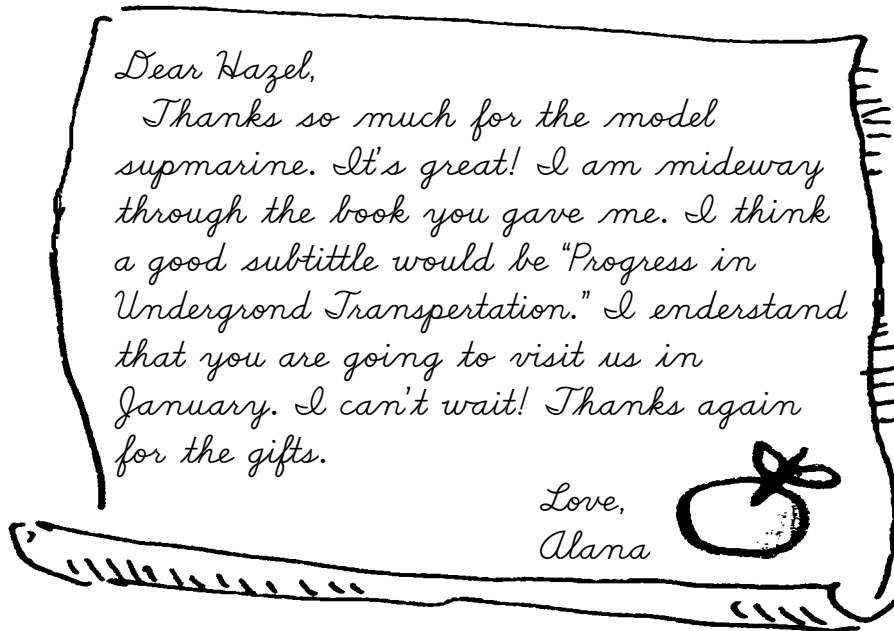 Dear Hazel,
Thanks so much for the model
supmarine. It's great! I am mideway
through the book you gave me. I think
a good subtittle would be “Progress in
Undergrond Transpertation.” I enderstand
that you are going to visit us in
January. I can't wait! Thanks again
for the gifts.
Love,
Alana